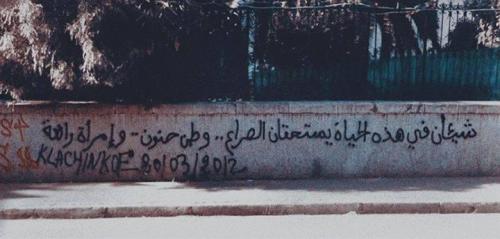 شيئان في هذه الحياة يستحقان الصراع.. وطن حنون - وإمرأة رائعة
KLACHINKOE 20/03/2012